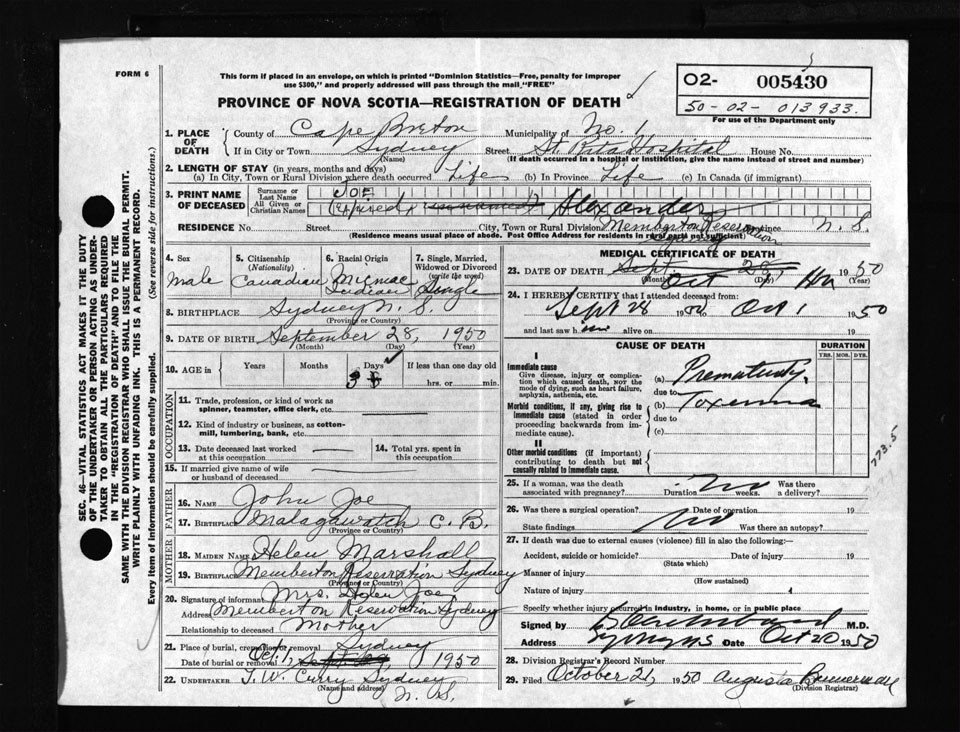 FORM 6
This form if placed in an envelope, on which is printed "Dominion Statistics—Free, penalty for improper
use $300," and properly addressed will pass through the mail "FREE"
O2- 005430
50-02-013933
For use of the Department only
PROVINCE OF NOVA SCOTIA—REGISTRATION OF DEATH
1. PLACE OF DEATH
County of Cape Breton Municipality of No. 1
If in City or Town Sydney Street St. Rita Hospital House No.
(Name) (If death occurred in a hospital or institution, give the name instead of street and number)
2. LENGTH OF STAY (in years, months and days)
(a) In City, Town or Rural Division where death occurred Life (b) In Province Life (c) In Canada (if immigrant)
3. PRINT NAME OF DECEASED
Surname or Last Name JOE
All Given or Christian Names Alexander
RESIDENCE No. Street City, Town or Rural Division Memberton Reservation Province N. S.
(Residence means usual place of abode. Post Office Address for residents in rural parts not sufficient)
4. Sex male
5. Citizenship (Nationality) Canadian
6. Racial Origin Micmac Indian
7. Single, Married, Widowed or Divorced (write the word) Single
8. BIRTHPLACE Sydney N. S.
(Province or Country)
9. DATE OF BIRTH September 28, 1950
(Month) (Day) (Year)
10. AGE in Years Months Days If less than one day old
3 hrs. or min.
OCCUPATION
11. Trade, profession or kind of work as
spinner, teamster, office clerk, etc.
12. Kind of industry or business, as cotton-
mill, lumbering, bank, etc.
13. Date deceased last worked at this occupation
14. Total yrs. spent in this occupation
15. If married give name of wife
or husband of deceased
FATHER
16. NAME John Joe
17. BIRTHPLACE Malagawatch C. B.
(Province or Country)
MOTHER
18. MAIDEN NAME Helen Marshall
19. BIRTHPLACE Memberton Reservation Sydney
(Province or Country)
20. Signature of informant Mrs. Helen Joe
Address Memberton Reservation Sydney
Relationship to deceased Mother
21. Place of burial, cremation or removal Sydney
Date of burial or removal Oct. 1, 1950
22. UNDERTAKER T. W. Curry Sydney
(Name and address) N. S.
MEDICAL CERTIFICATE OF DEATH
23. DATE OF DEATH Sept 28, Oct 1950
(Month) (Day) (Year)
24. I HEREBY CERTIFY that I attended deceased from:
Sept 28 1950 to Oct 1 1950
and last saw him alive on 19
CAUSE OF DEATH DURATION
YRS. MOS. DYS.
I
Immediate cause
Give disease, injury or complica-
tion which caused death, NOT the
mode of dying, such as heart failure,
asphyxia, asthenia, etc.
(a) Prematurity,
due to
Morbid conditions, if any, giving rise to
immediate cause (stated in order
proceeding backwards from im-
mediate cause).
(b) Toxemia
due to
(c)
II
Other morbid conditions (if important)
contributing to death but not
causally related to immediate cause.
773.5
25. If a woman, was the death No Was there
associated with pregnancy? Duration weeks. a delivery?
26. Was there a surgical operation? Date of operation 19
State findings No Was there an autopsy?
27. If death was due to external causes (violence) fill in also the following:—
Accident, suicide or homicide? Date of injury 19
(State which)
Manner of injury
(How sustained)
Nature of injury
Specify whether injury occurred in industry, in home, or in public place
Signed by M.D.
Address Date Oct 20 1950
28. Division Registrar's Record Number
29. Filed October 21, 1950 Augusta
(Division Registrar)
SEC. 46—VITAL STATISTICS ACT MAKES IT THE DUTY
OF THE UNDERTAKER OR PERSON ACTING AS UNDER-
TAKER TO OBTAIN ALL THE PARTICULARS REQUIRED
IN THE "REGISTRATION OF DEATH" AND TO FILE THE
SAME WITH THE DIVISION REGISTRAR WHO SHALL ISSUE THE BURIAL PERMIT.
WRITE PLAINLY WITH UNFADING INK. THIS IS A PERMANENT RECORD.
Every item of information should be carefully supplied. (See reverse side for instructions.)